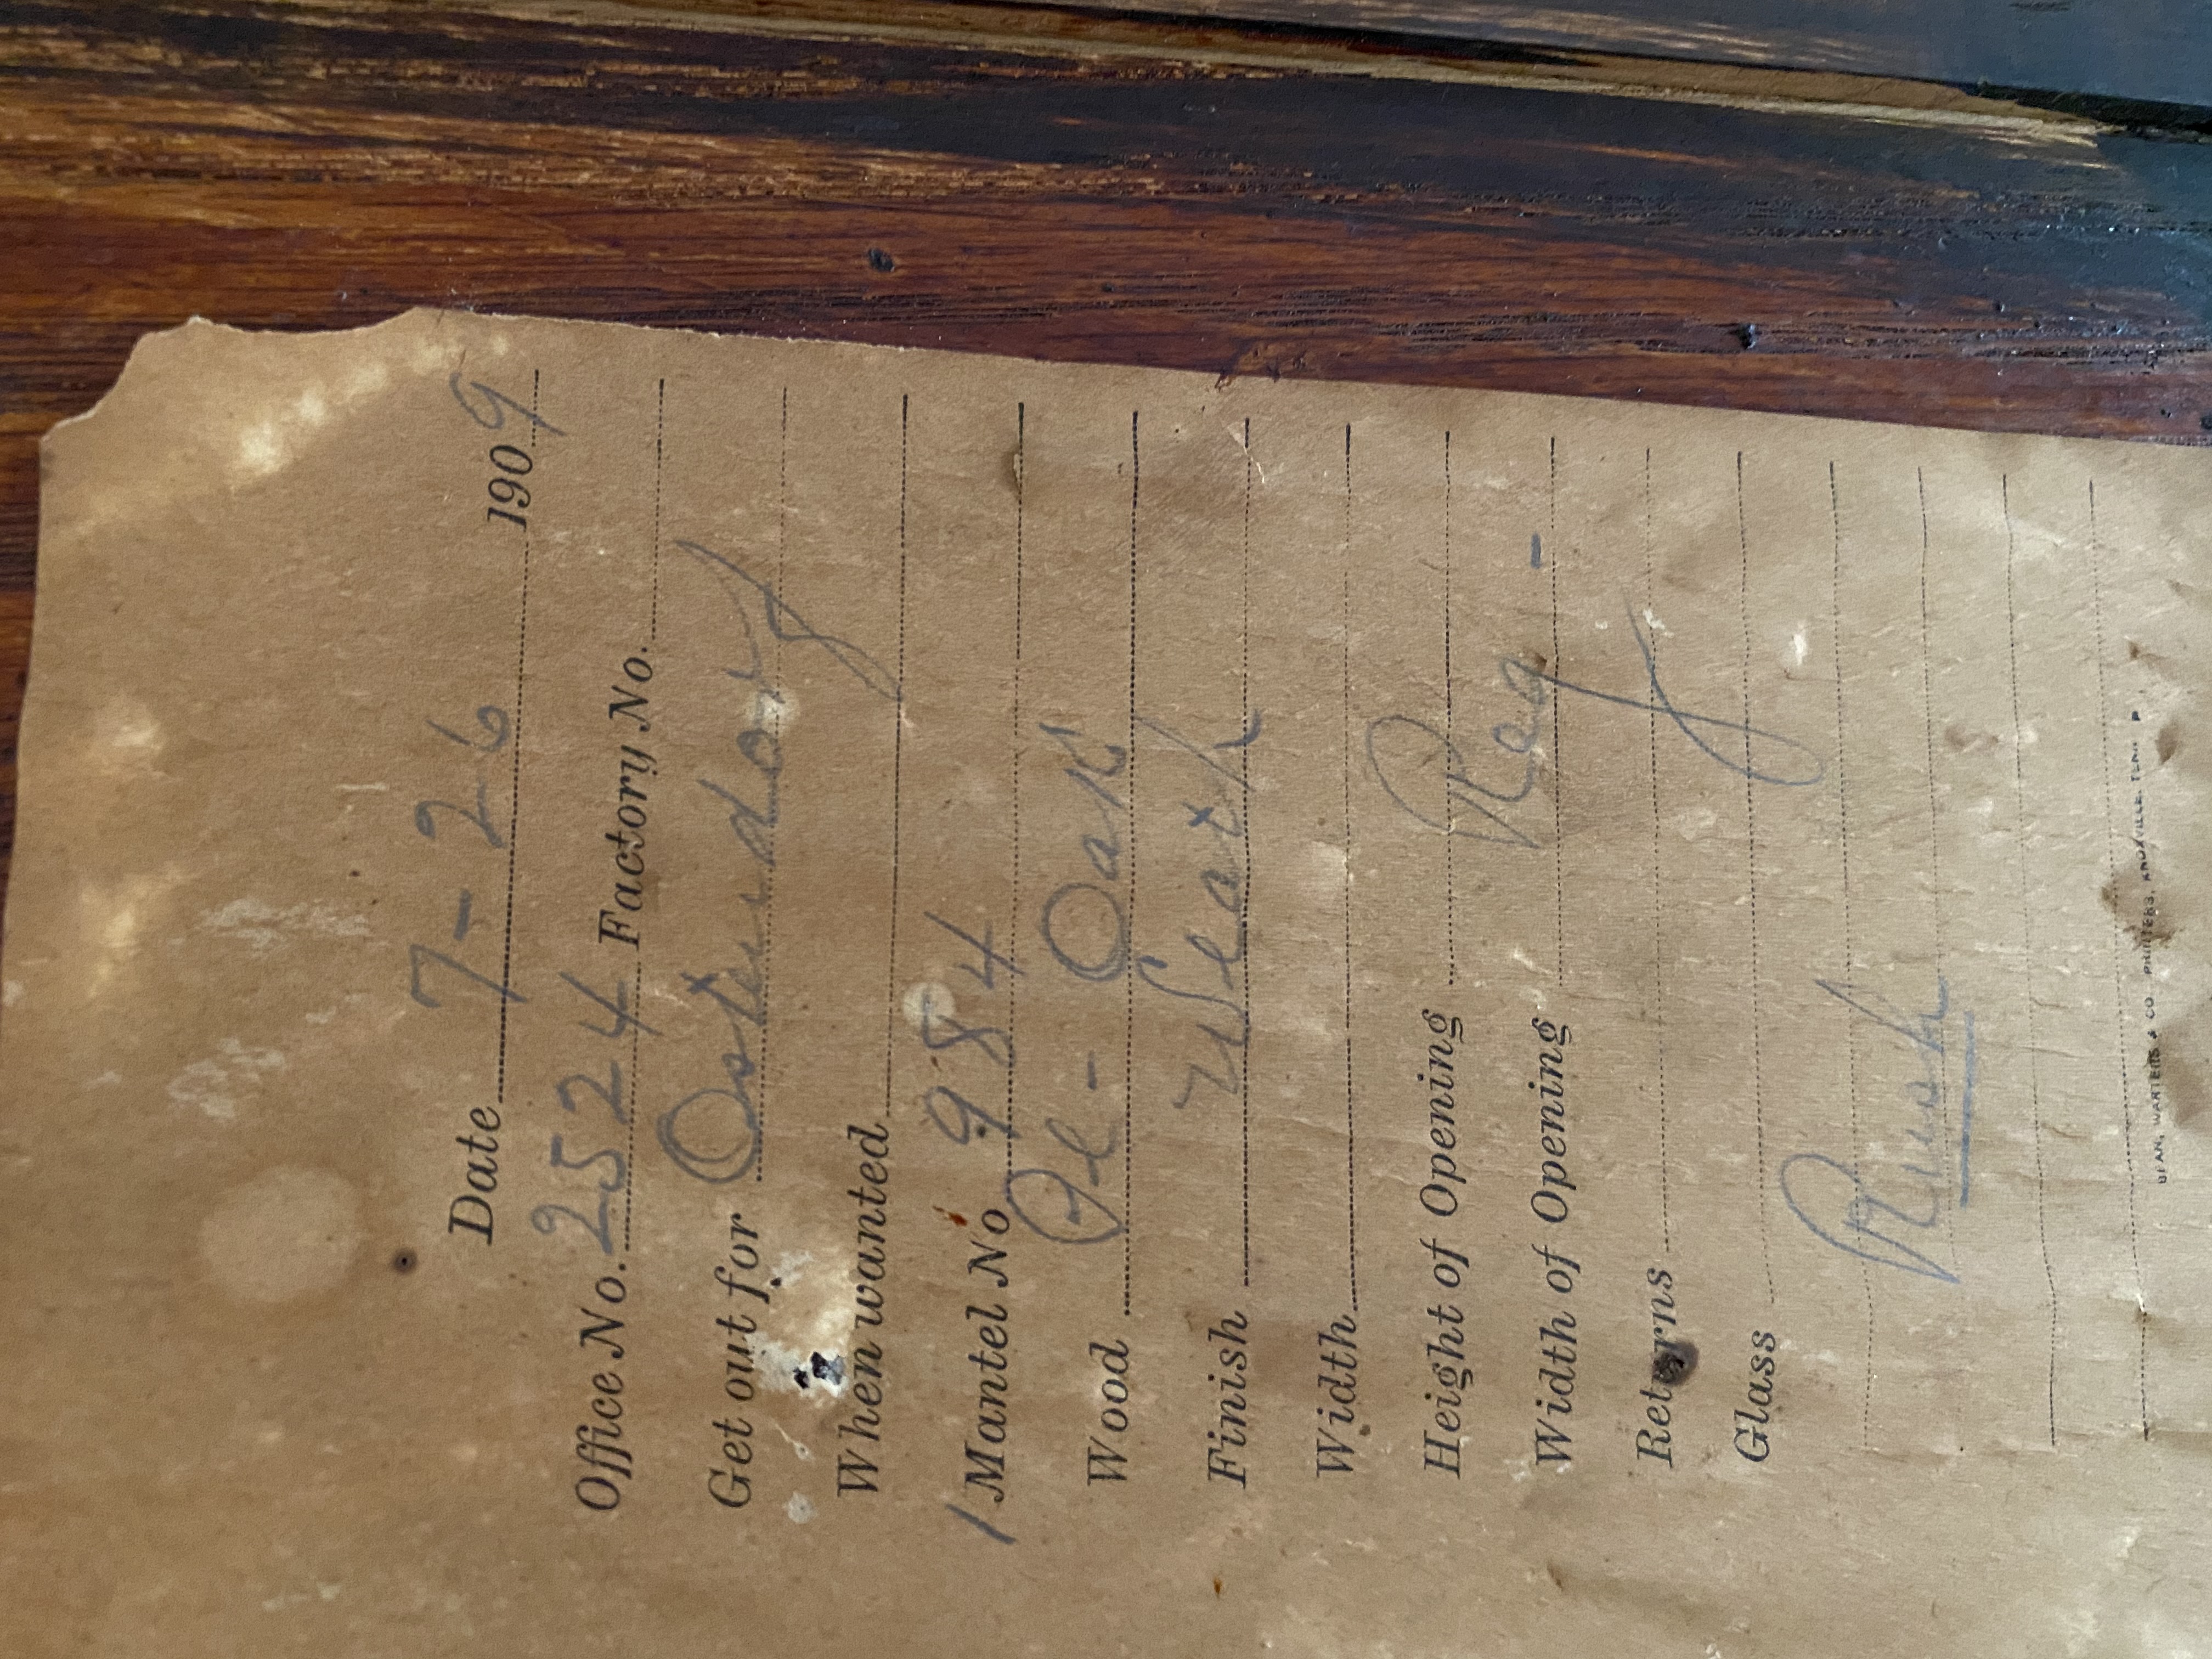 Date 7-26 1909
Office No. 2524 Factory No.
Get out for
When wanted
1 Mantel No 984
Wood Pl- Oak
Finish Weath
Width
Height of Opening Reg-
Width of Opening
Returns
Glass
Rush
BEAN, WARTERS & CO PRINTERS, KNOXVILLE, TENN